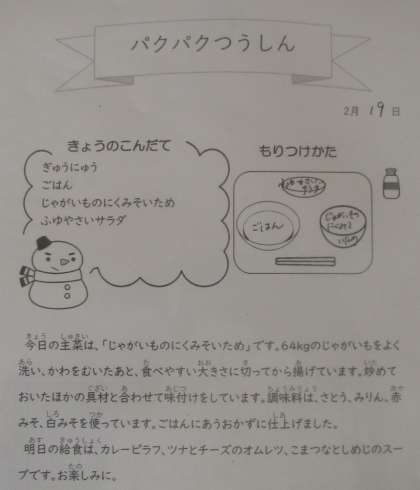 パクパクつうしん
2月 19 日
きょうのこんだて
ぎゅうにゅう
ごはん
じゃがいものにくみそいため
ふゆやさいサラダ
もりつけかた
ふゆやさい
サラダ
ごはん
じゃがいもの
にくみそ
いため
今日の主菜は、「じゃがいものにくみそいため」です。64kgのじゃがいもをよく
洗い、かわをむいたあと、食べやすい大きさに切ってから揚げています。炒めて
おいたほかの具材と合わせて味付けをしています。調味料は、さとう、みりん、赤
みそ、白みそを使っています。ごはんにあうおかずに仕上げました。
明日の給食は、カレーピラフ、ツナとチーズのオムレツ、こまつなとしめじのスー
プです。お楽しみに。